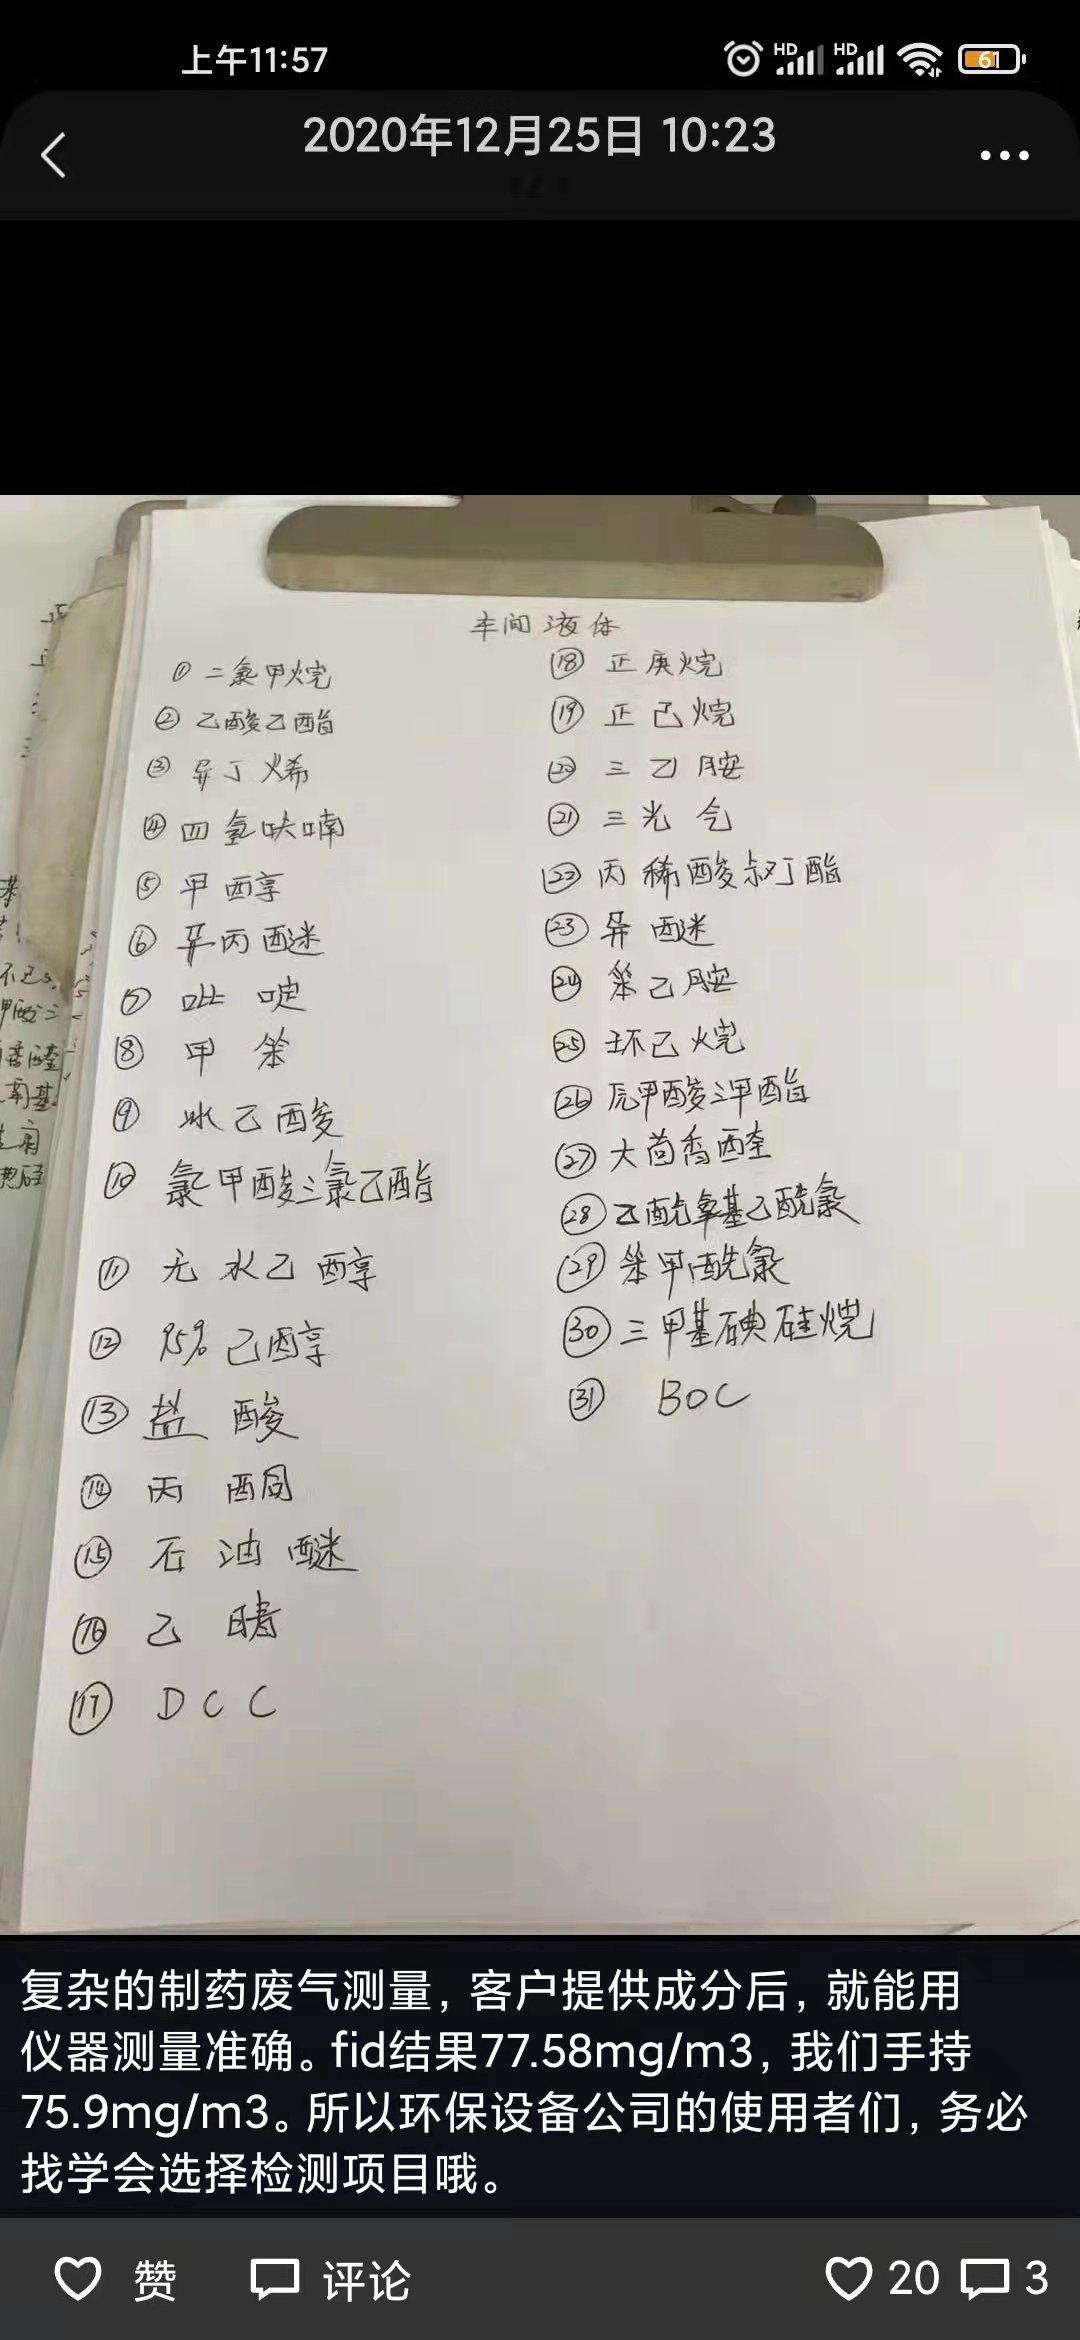 上午11:57
HD HD 61
2020年12月25日 10:23
车间液体
① 二氯甲烷
② 乙酸乙酯
③ 异丁烯
④ 四氢呋喃
⑤ 甲醇
⑥ 异丙醚
⑦ 吡啶
⑧ 甲笨
⑨ 冰乙酸
⑩ 氯甲酸三氯乙酯
⑪ 无水乙醇
⑫ 95% 乙醇
⑬ 盐酸
⑭ 丙酮
⑮ 石油醚
⑯ 乙腈
⑰ DCC
⑱ 正庚烷
⑲ 正己烷
⑳ 三乙胺
㉑ 三光气
㉒ 丙稀酸叔丁酯
㉓ 异醚
㉔ 笨乙胺
㉕ 环己烷
㉖ 原甲酸三甲酯
㉗ 大茴香醛
㉘ 乙酰氧基乙酰氯
㉙ 笨甲酰氯
㉚ 三甲基碘硅烷
㉛ BOC
复杂的制药废气测量，客户提供成分后，就能用
仪器测量准确。fid结果77.58mg/m3，我们手持
75.9mg/m3。所以环保设备公司的使用者们，务必
找学会选择检测项目哦。
赞 评论 20 3